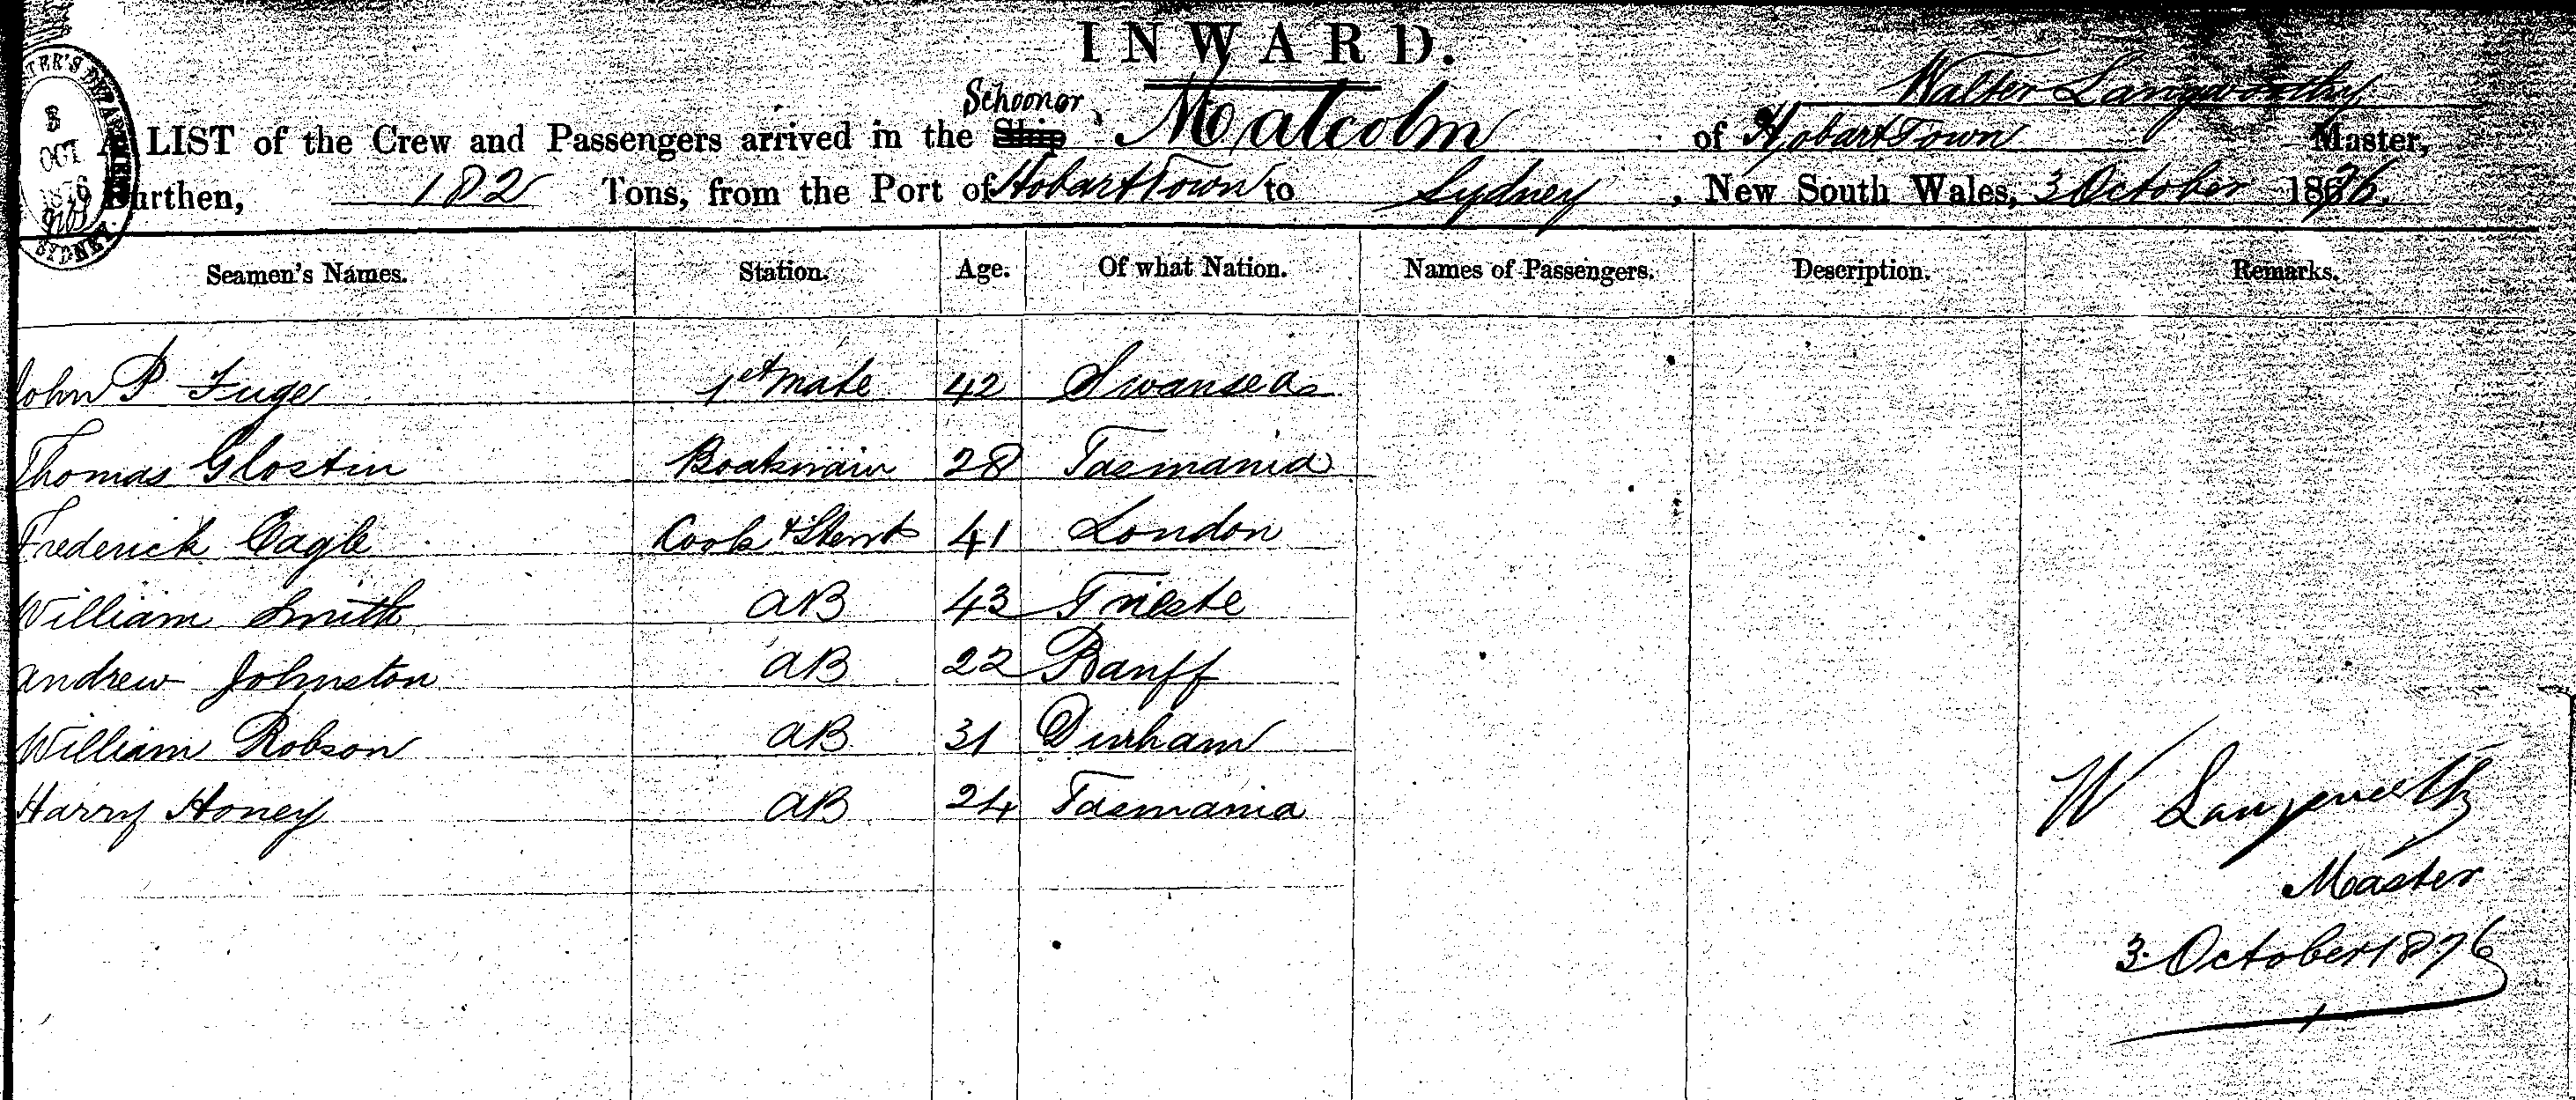 INWARD.
Schooner Walter Langworthy
A LIST of the Crew and Passengers arrived in the Ship "Malcolm of Hobart Town Master,
Burthen, 182 Tons, from the Port of Hobart Town to Sydney, New South Wales, 3 October 1876.
3
OCT
1876
SYDNEY
Seamen's Names. Station. Age. Of what Nation. Names of Passengers. Description. Remarks.
John P Fuge 1st mate 42 Swansea
Thomas Glostin Boatswain 28 Tasmania
Frederick Cagle Cook & Stewt 41 London
William Smith AB 43 Trieste
Andrew Johnston AB 22 Banff
William Robson AB 31 Durham
Harry Honey AB 24 Tasmania
W Langworthy
Master
3 October 1876